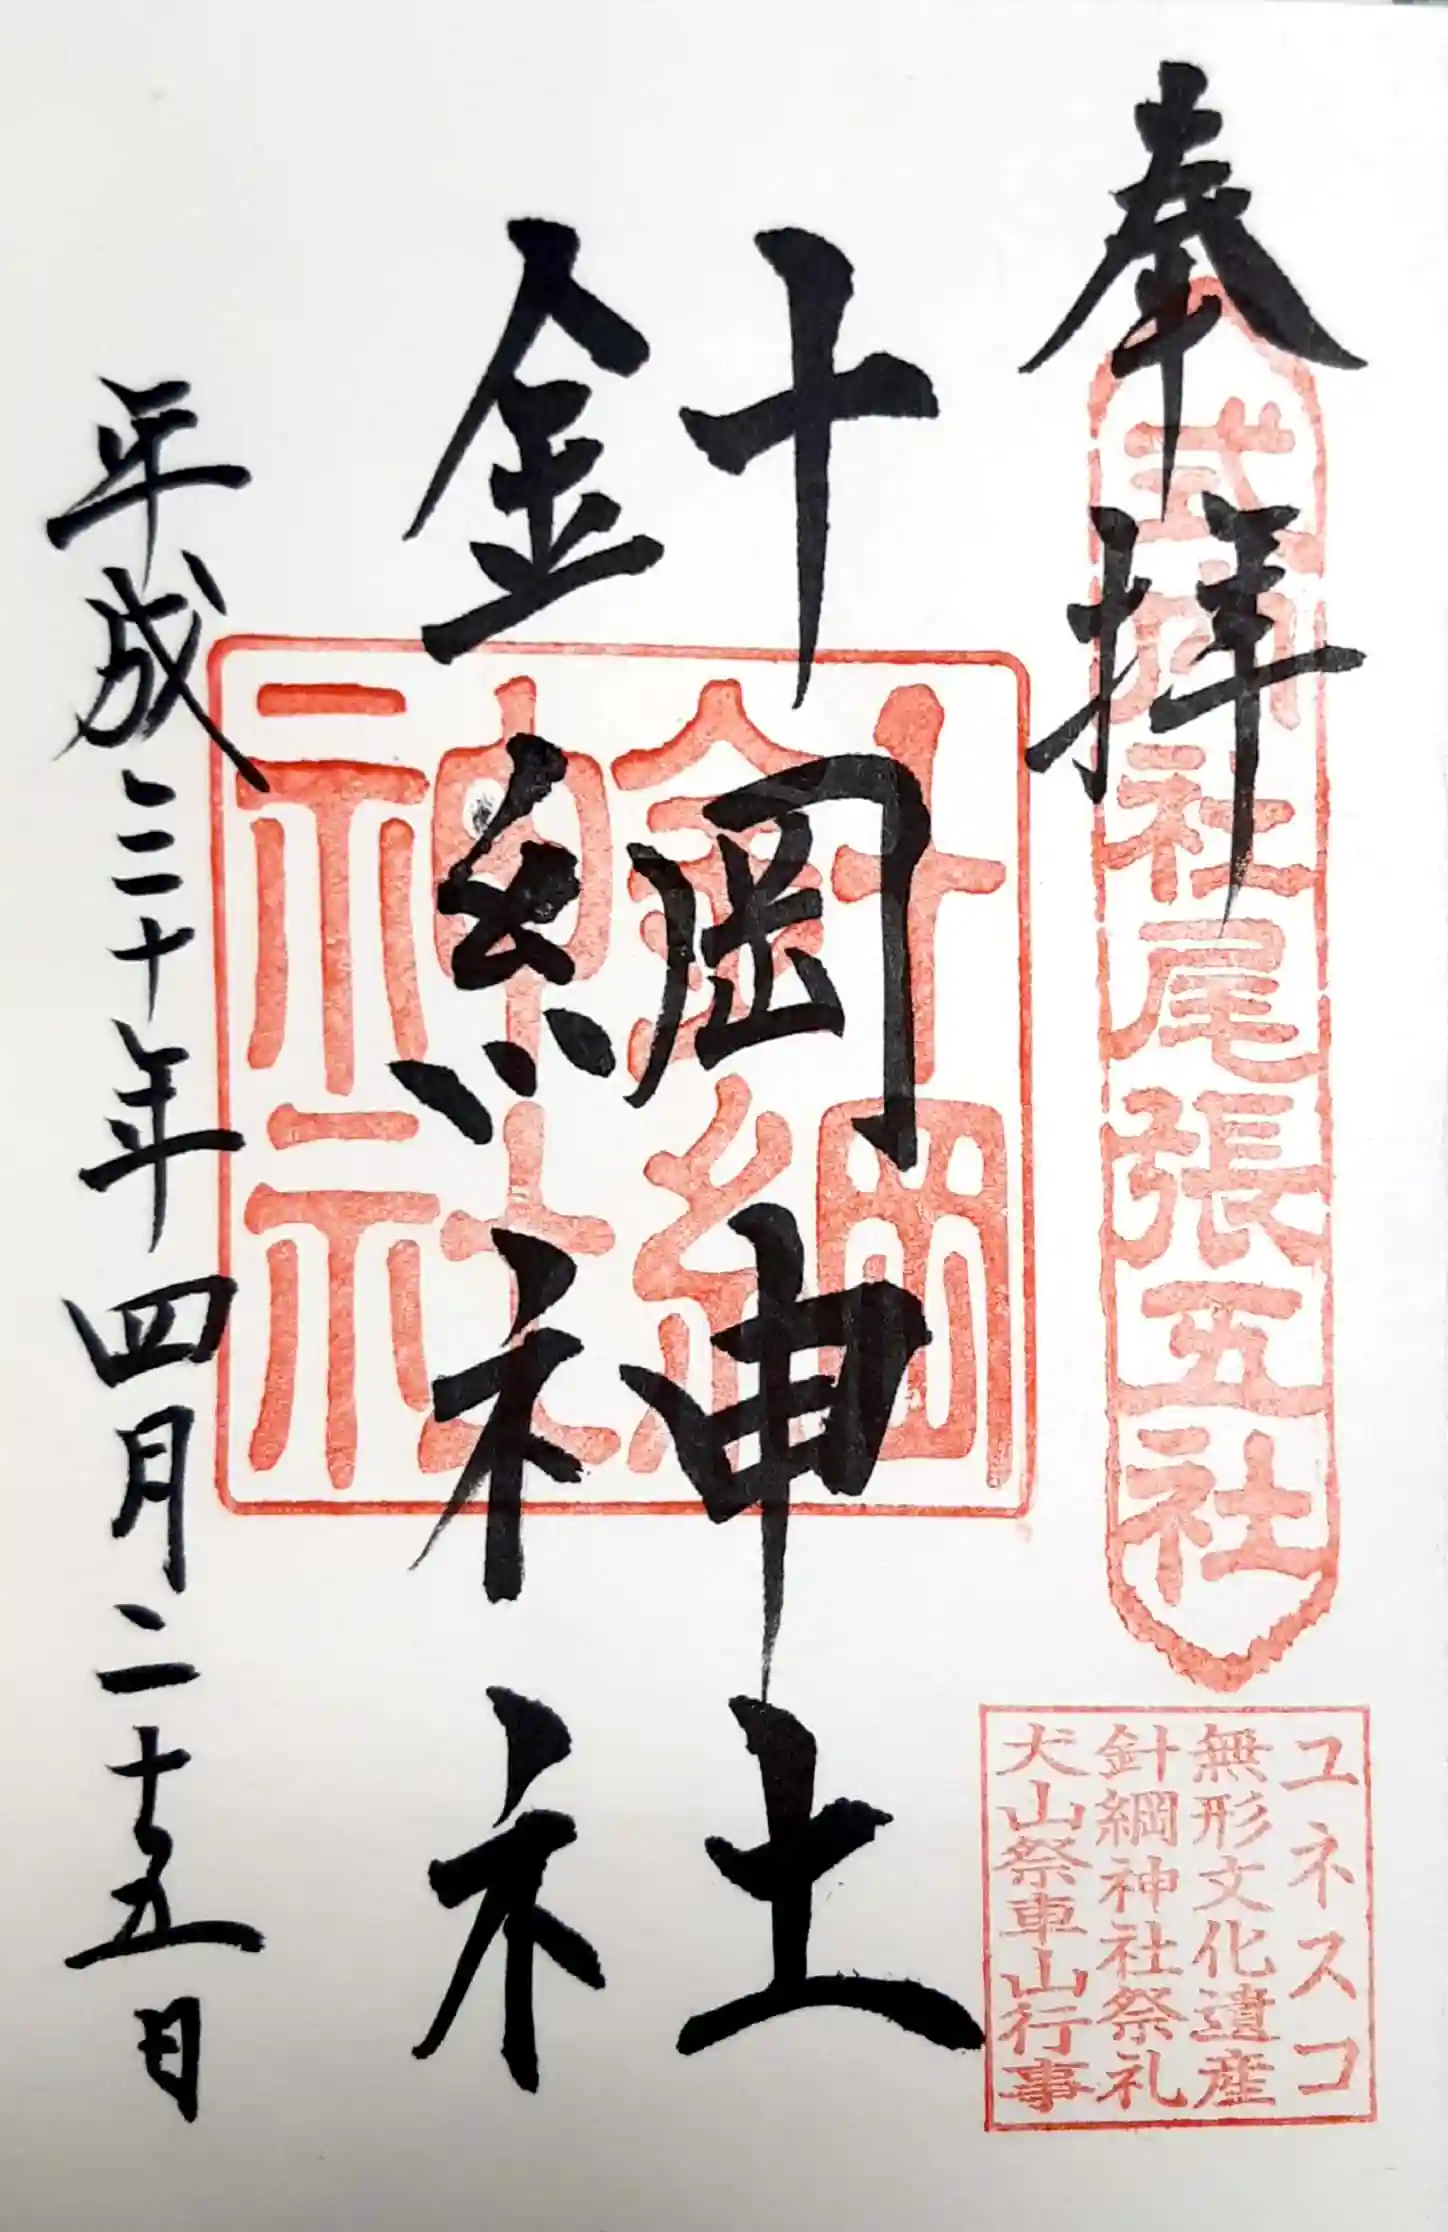 奉拝
式内社尾張五社
ユネスコ
無形文化遺産
針綱神社祭礼
犬山祭車山行事
針綱神社
針綱
神社
平成三十年四月二十五日